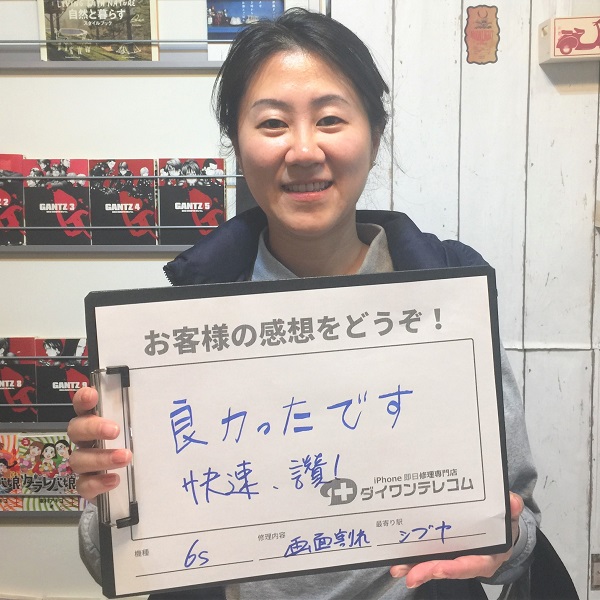 LIVING WITH NATURE
自然と暮らす
スタイルブック
GANTZ 3
GANTZ 4
GANTZ 5
GANTZ 8
お客様の感想をどうぞ！
良かったです
快速、讃！
iPhone 即日修理専門店
ダイワンテレコム
機種 6s 修理内容 画面割れ 最寄り駅 シブヤ